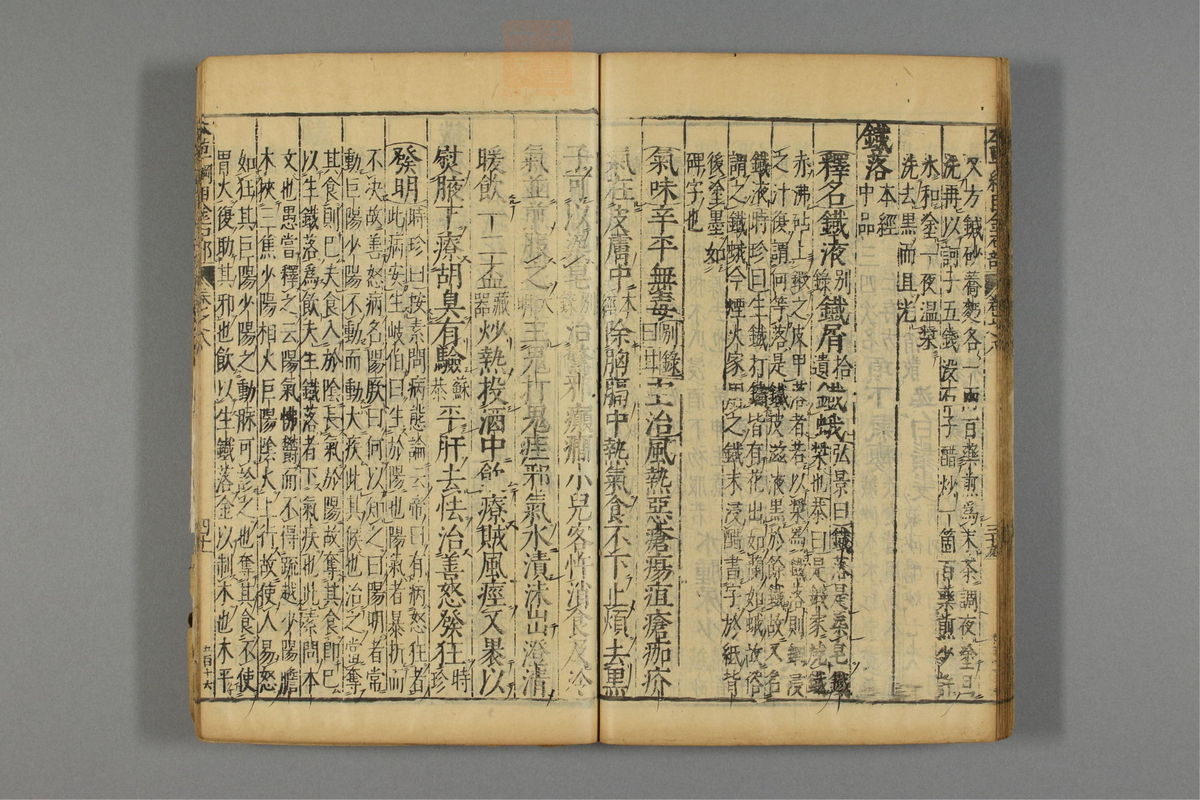 又方鍼砂蕎麪各一兩百藥煎爲末茶調夜塗旦
洗再以訶子五錢沒石子醋炒一箇百藥煎少許
水和塗一夜溫漿
洗去黑而且光
鐵落 本經中品
釋名鐵液別錄鐵屑拾遺鐵蛾弘景曰鐵落是染皂鐵
漿也恭曰是鍛家燒鐵
赤沸砧上鍛之皮甲落者若以漿爲鐵落則鋼浸
之汁復謂何等落是鐵皮滋液黑於餘鐵故又名
鐵液時珍曰生鐵打鑄皆有花出如蘭如蛾故俗
謂之鐵蛾今煙火家用之鐵末浸醋書字於紙背
後塗墨如
碑字也
氣味辛平無毒別錄曰甘主治風熱惡瘡瘍疽瘡痂疥
氣在皮膚中本經除胸膈中熱氣食不下止煩去黑
子可以染皂別錄治驚邪癲癎小兒客忤消食及冷
氣並煎服之大明主鬼打鬼疰邪氣水漬沫出澄清
暖飲一二盃藏器炒熱投酒中飲療賊風痙又裹以
熨腋下療胡臭有驗蘇恭平肝去怯治善怒發狂時珍
發明時珍曰按素問病態論云帝曰有病怒狂者
此病安生岐伯曰生於陽也陽氣者暴折而
不决故善怒病名陽厥曰何以知之曰陽明者常
動巨陽少陽不動而動大疾此其候也治之當奪
其食則已夫食入於陰長氣於陽故奪其食即已
以生鐵落爲飲夫生鐵落者下氣疾也此素問本
文也愚嘗釋之云陽氣怫鬱而不得疏越少陽膽
木挾三焦少陽相火巨陽陰火上行故使人易怒
如狂其巨陽少陽之動脉可診之也奪其食不使
胃火復助其邪也飲以生鐵落金以制木也木平